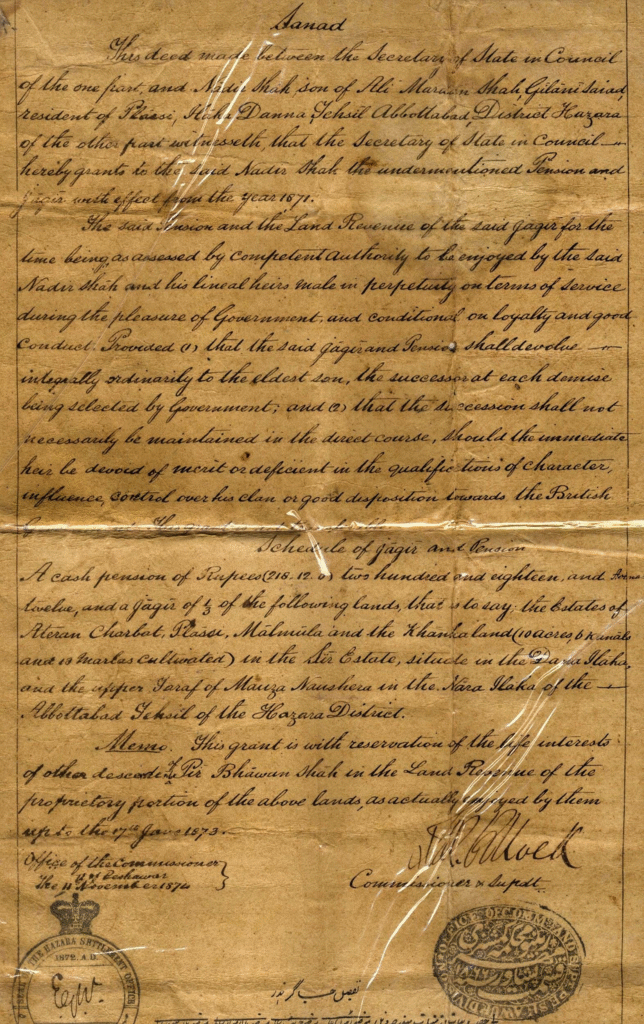 Sanad
This deed made between the Secretary of State in Council
of the one part, and Nadir Shah son of Ali Mardan Shah Gilani Saiad,
resident of Plassi, Ilaka Danna Tehsil Abbottabad, District Hazara
of the other part witnesseth, that the Secretary of State in Council
hereby grants to the said Nadir Shah the undermentioned Pension and
Jagir with effect from the year 1871.
The said Pension and the Land Revenue of the said Jagir for the
time being, as assessed by competent authority to be enjoyed by the said
Nadir Shah and his lineal heirs male in perpetuity on terms of service
during the pleasure of Government, and conditional on loyalty and good
conduct. Provided (1) that the said Jagir and Pension shall devolve
integrally ordinarily to the eldest son, the successor at each demise
being selected by Government; and (2) that the succession shall not
necessarily be maintained in the direct course, should the immediate
heir be devoid of merit or deficient in the qualifications of character,
influence, control over his clan or good disposition towards the British
Schedule of Jagir and Pension
A cash pension of Rupees (218-12-0) two hundred and eighteen, and Annas
twelve, and a Jagir of ½ of the following lands, that is to say: the Estates of
Ateran Charbat, Plassi, Malmula and the Khanka land (10 acres, 6 Kunals
and 13 Marlas cultivated) in the Sir Estate, situate in the Dana Ilaka,
and the upper Taraf of Mauza Naushera in the Nara Ilaka of the
Abbottabad Tehsil of the Hazara District.
Memo. This grant is with reservation of the life interests
of other descdts of Pir Bhawan Shah in the Land Revenue of the
proprietory portion of the above lands, as actually enjoyed by them
up to the 17th Jany 1873.
Office of the Commissioner
Peshawar
The 11 November 1874
Commissioner & Supdt
THE HAZARA SETTLEMENT OFFICE
1872. A.D.